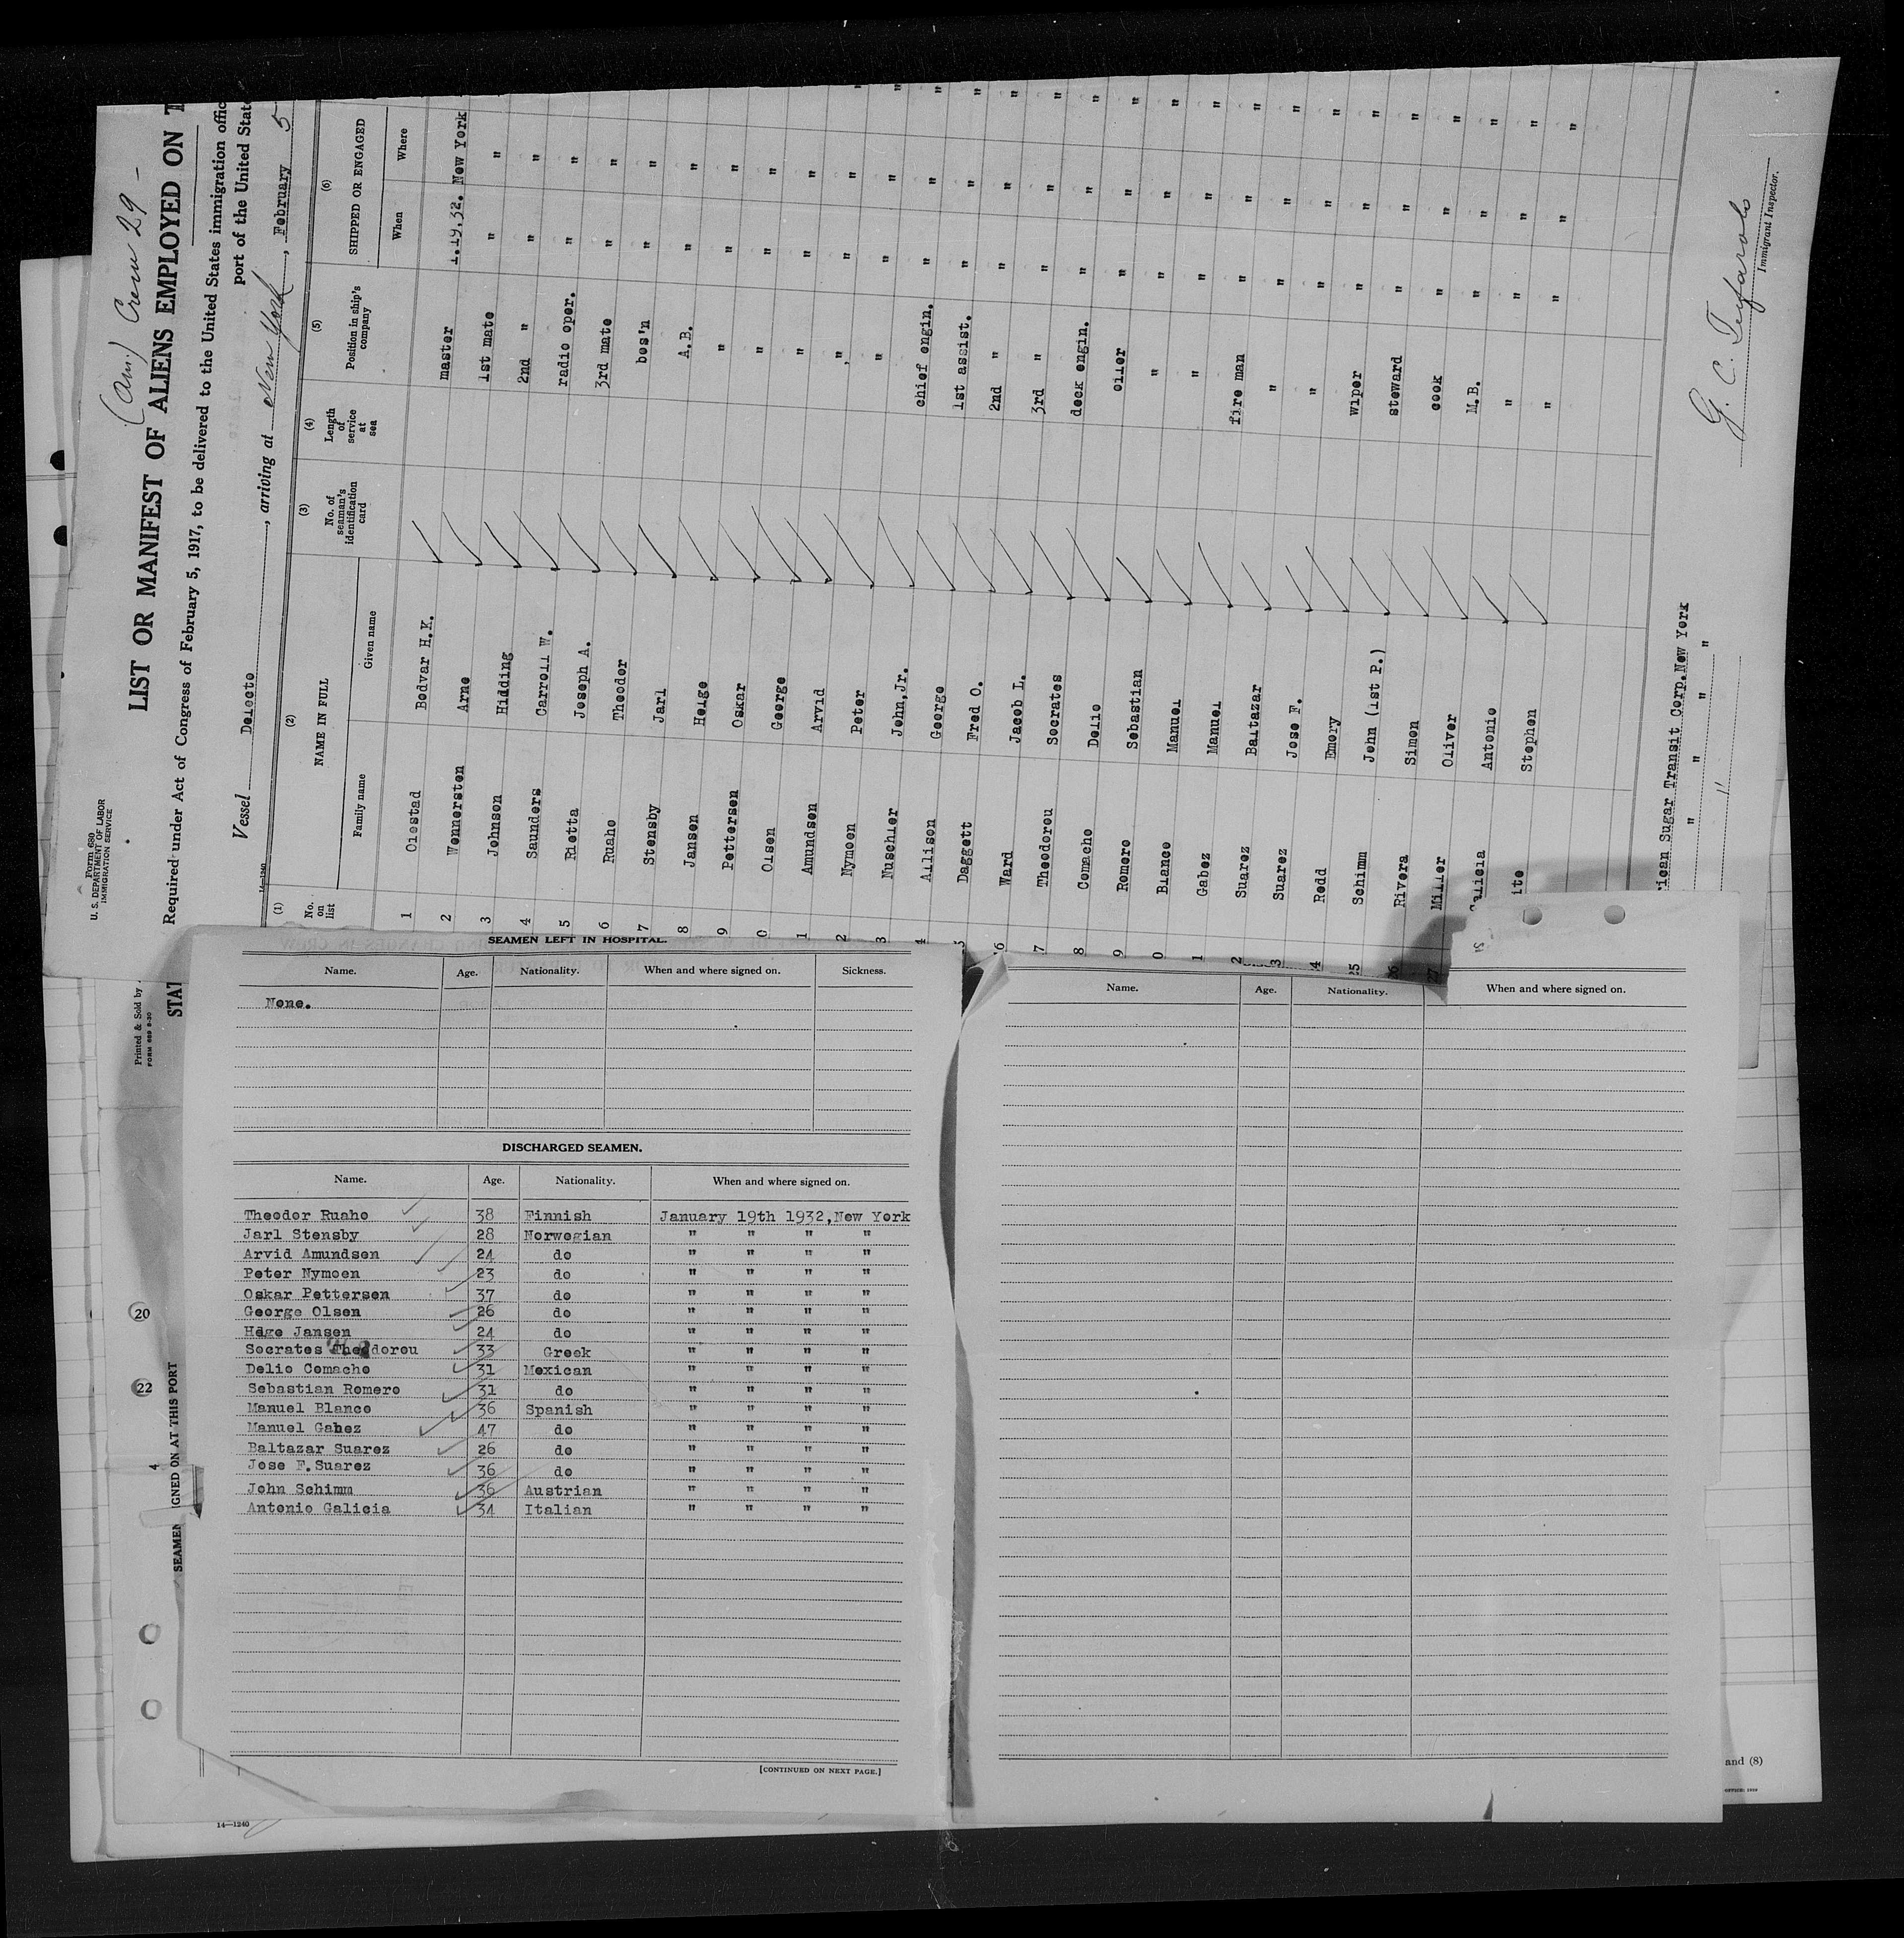 (Am) Crew 29 -
Form 680
U. S. DEPARTMENT OF LABOR
IMMIGRATION SERVICE
LIST OR MANIFEST OF ALIENS EMPLOYED ON T
Required under Act of Congress of February 5, 1917, to be delivered to the United States immigration offic
port of the United Stat
Vessel Delecto, arriving at New York, February 5
(1) (2) (3) (4) (5) (6)
No. on list NAME IN FULL No. of seaman's identification card Length of service at sea Position in ship's company SHIPPED OR ENGAGED
Family name Given name When Where
1 Olestad Bodvar H.K. master 1.19.32. New York
2 Wennersten Arne 1st mate " "
3 Johnson Hidding 2nd " " "
4 Saunders Carroll W. radio oper. " "
5 Rietta Joseph A. 3rd mate " "
6 Ruaho Theodor bos'n " "
7 Stensby Jarl A.B. " "
8 Jansen Helge " " "
9 Pettersen Oskar " " "
0 Olsen George " " "
1 Amundsen Arvid " " "
2 Nymoen Peter " " "
3 Nuschler John,Jr. chief engin. " "
4 Allison George 1st assist. " "
5 Daggett Fred O. 2nd " " "
6 Ward Jacob L. 3rd " " "
7 Theodorou Socrates deck engin. " "
8 Comacho Delio oiler " "
9 Romero Sebastian " " "
0 Blanco Manuel " " "
1 Gabez Manuel fire man " "
2 Suarez Baltazar " " "
3 Suarez Jose F. " " "
4 Redd Emory wiper " "
25 Schimm John (1st P.) steward " "
26 Rivera Simon cook " "
27 Miller Oliver M.B. " "
Galicia Antonio " " "
ite Stephen " " "
rican Sugar Transit Corp. New York
" " "
G. C.
Immigrant Inspector.
Printed & Sold by
FORM 689 8-30
STAT
20
22
4
SEAMEN
GNED ON AT THIS PORT
SEAMEN LEFT IN HOSPITAL.
Name. Age. Nationality. When and where signed on. Sickness.
None.
DISCHARGED SEAMEN.
Name. Age. Nationality. When and where signed on.
Theodor Ruaho 38 Finnish January 19th 1932,New York
Jarl Stensby 28 Norwegian " " " "
Arvid Amundsen 24 do " " " "
Peter Nymoen 23 do " " " "
Oskar Pettersen 37 do " " " "
George Olsen 26 do " " " "
Hdge Jansen 24 do " " " "
Socrates Theodorou 33 Greek " " " "
Delio Comacho 31 Mexican " " " "
Sebastian Romero 31 do " " " "
Manuel Blanco 36 Spanish " " " "
Manuel Gabez 47 do " " " "
Baltazar Suarez 26 do " " " "
Jose F.Suarez 36 do " " " "
John Schimm 36 Austrian " " " "
Antonio Galicia 34 Italian " " " "
[CONTINUED ON NEXT PAGE.]
Name. Age. Nationality. When and where signed on.
and (8)
14—1240